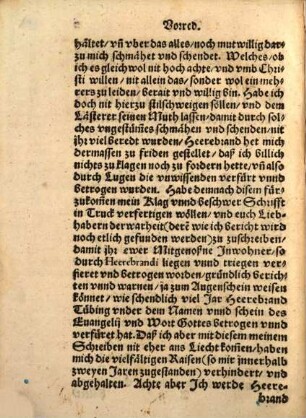 Vorred.
håltet/ vñ vber das alles/ noch mutwillig dar-
zu mich schmåhet vnd schendet. Welches/ ob
ich es gleichwol nit hoch achte/ vnd vmb Chri-
sti willen/ nit allein das/ sonder wol ein meh-
rers zu leiden/ berait vnd willig bin. Habe ich
doch nit hierzu stilschweigen söllen/ vnd dem
Lästerer seinen Muth lassen/ damit durch sol-
ches vngestůmes schmåhen vnd schenden/ nit
jhr viel beredt wurden/ Heerebrand het mich
dermassen zu friden gestellet/ daß ich billich
nichts zuklagen noch zu fordern hette/ vñ also
durch Lugen die vnwissenden verfůrt vnnd
betrogen wurden. Habe demnach disem für-
zukomeñ mein Klag vnnd beschwer Schrifft
in Truck verfertigen wöllen/ vnd euch Lieb-
habern derwarheit/ (derē wie ich bericht wird
noch etlich gefunden werden) zu zuschreiben/
damit jhr ewer Mitgenoßne Inwohner/ so
durch Heerebrands liegen vnnd triegen ver-
fieret vnd betrogen worden/ gründlich berich-
ten vnnd warnen/ ja zum Augenschein weisen
könnet/ wie schendlich viel Jar Heerebrand
Tübing vnder dem Namen vnnd schein des
Euangelij vnd Wort Gottes betrogen vnnd
verfüret hat. Daß ich aber mit disem meinem
Schreiben nit eher ans Liecht kom̃en/ haben
mich die vielfåltigen Raisen (so mir jnnerhalb
zweyen Jaren zugestanden) verhindert/ vnd
abgehalten. Achte aber Ich werde Heere-
brand